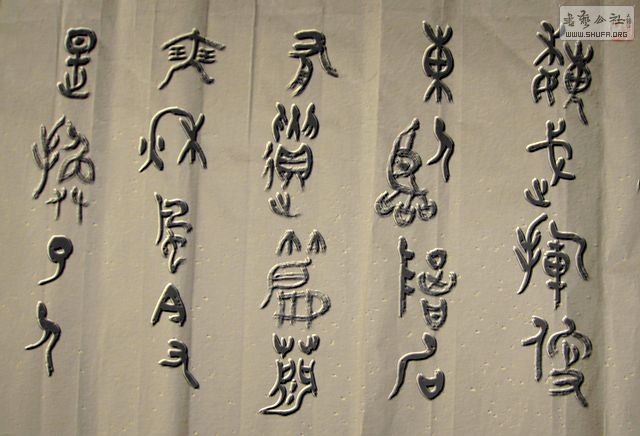 魏武揮鞭
東臨碣石
有遺篇蕭
瑟秋風今又
是換了人
書藝公社
WWW.SHUFA.ORG